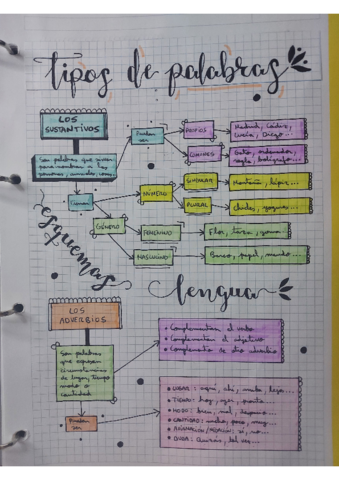 tipos de palabras
LOS
SUSTANTIVOS
Son palabras que sirven
para nombrar a las
personas, animales, cosas...
Pueden
ser
PROPIOS
Madrid, Cádiz,
Lucía, Diego...
COMUNES
Gato, ordenador,
regla, bolígrafo...
Tienen
NÚMERO
SINGULAR
Montaña, lápiz...
PLURAL
GÉNERO
FEMENINO
Flor, tiza, goma...
MASCULINO
Barco, papel, mundo...
esquemas
lengua
LOS
ADVERBIOS
Son palabras
que expresan
circunstancias
de lugar, tiempo
modo o
cantidad
Complementan el verbo
Complementan el adjetivo
Complemento de otro adverbio
Pueden
ser
LUGAR: aquí, ahí, lejos...
TIEMPO: hoy, ayer, pronto
MODO: bien, mal, despacio...
CANTIDAD: mucho, poco, muy...
sí, no...
DUDA: quizás, tal vez...